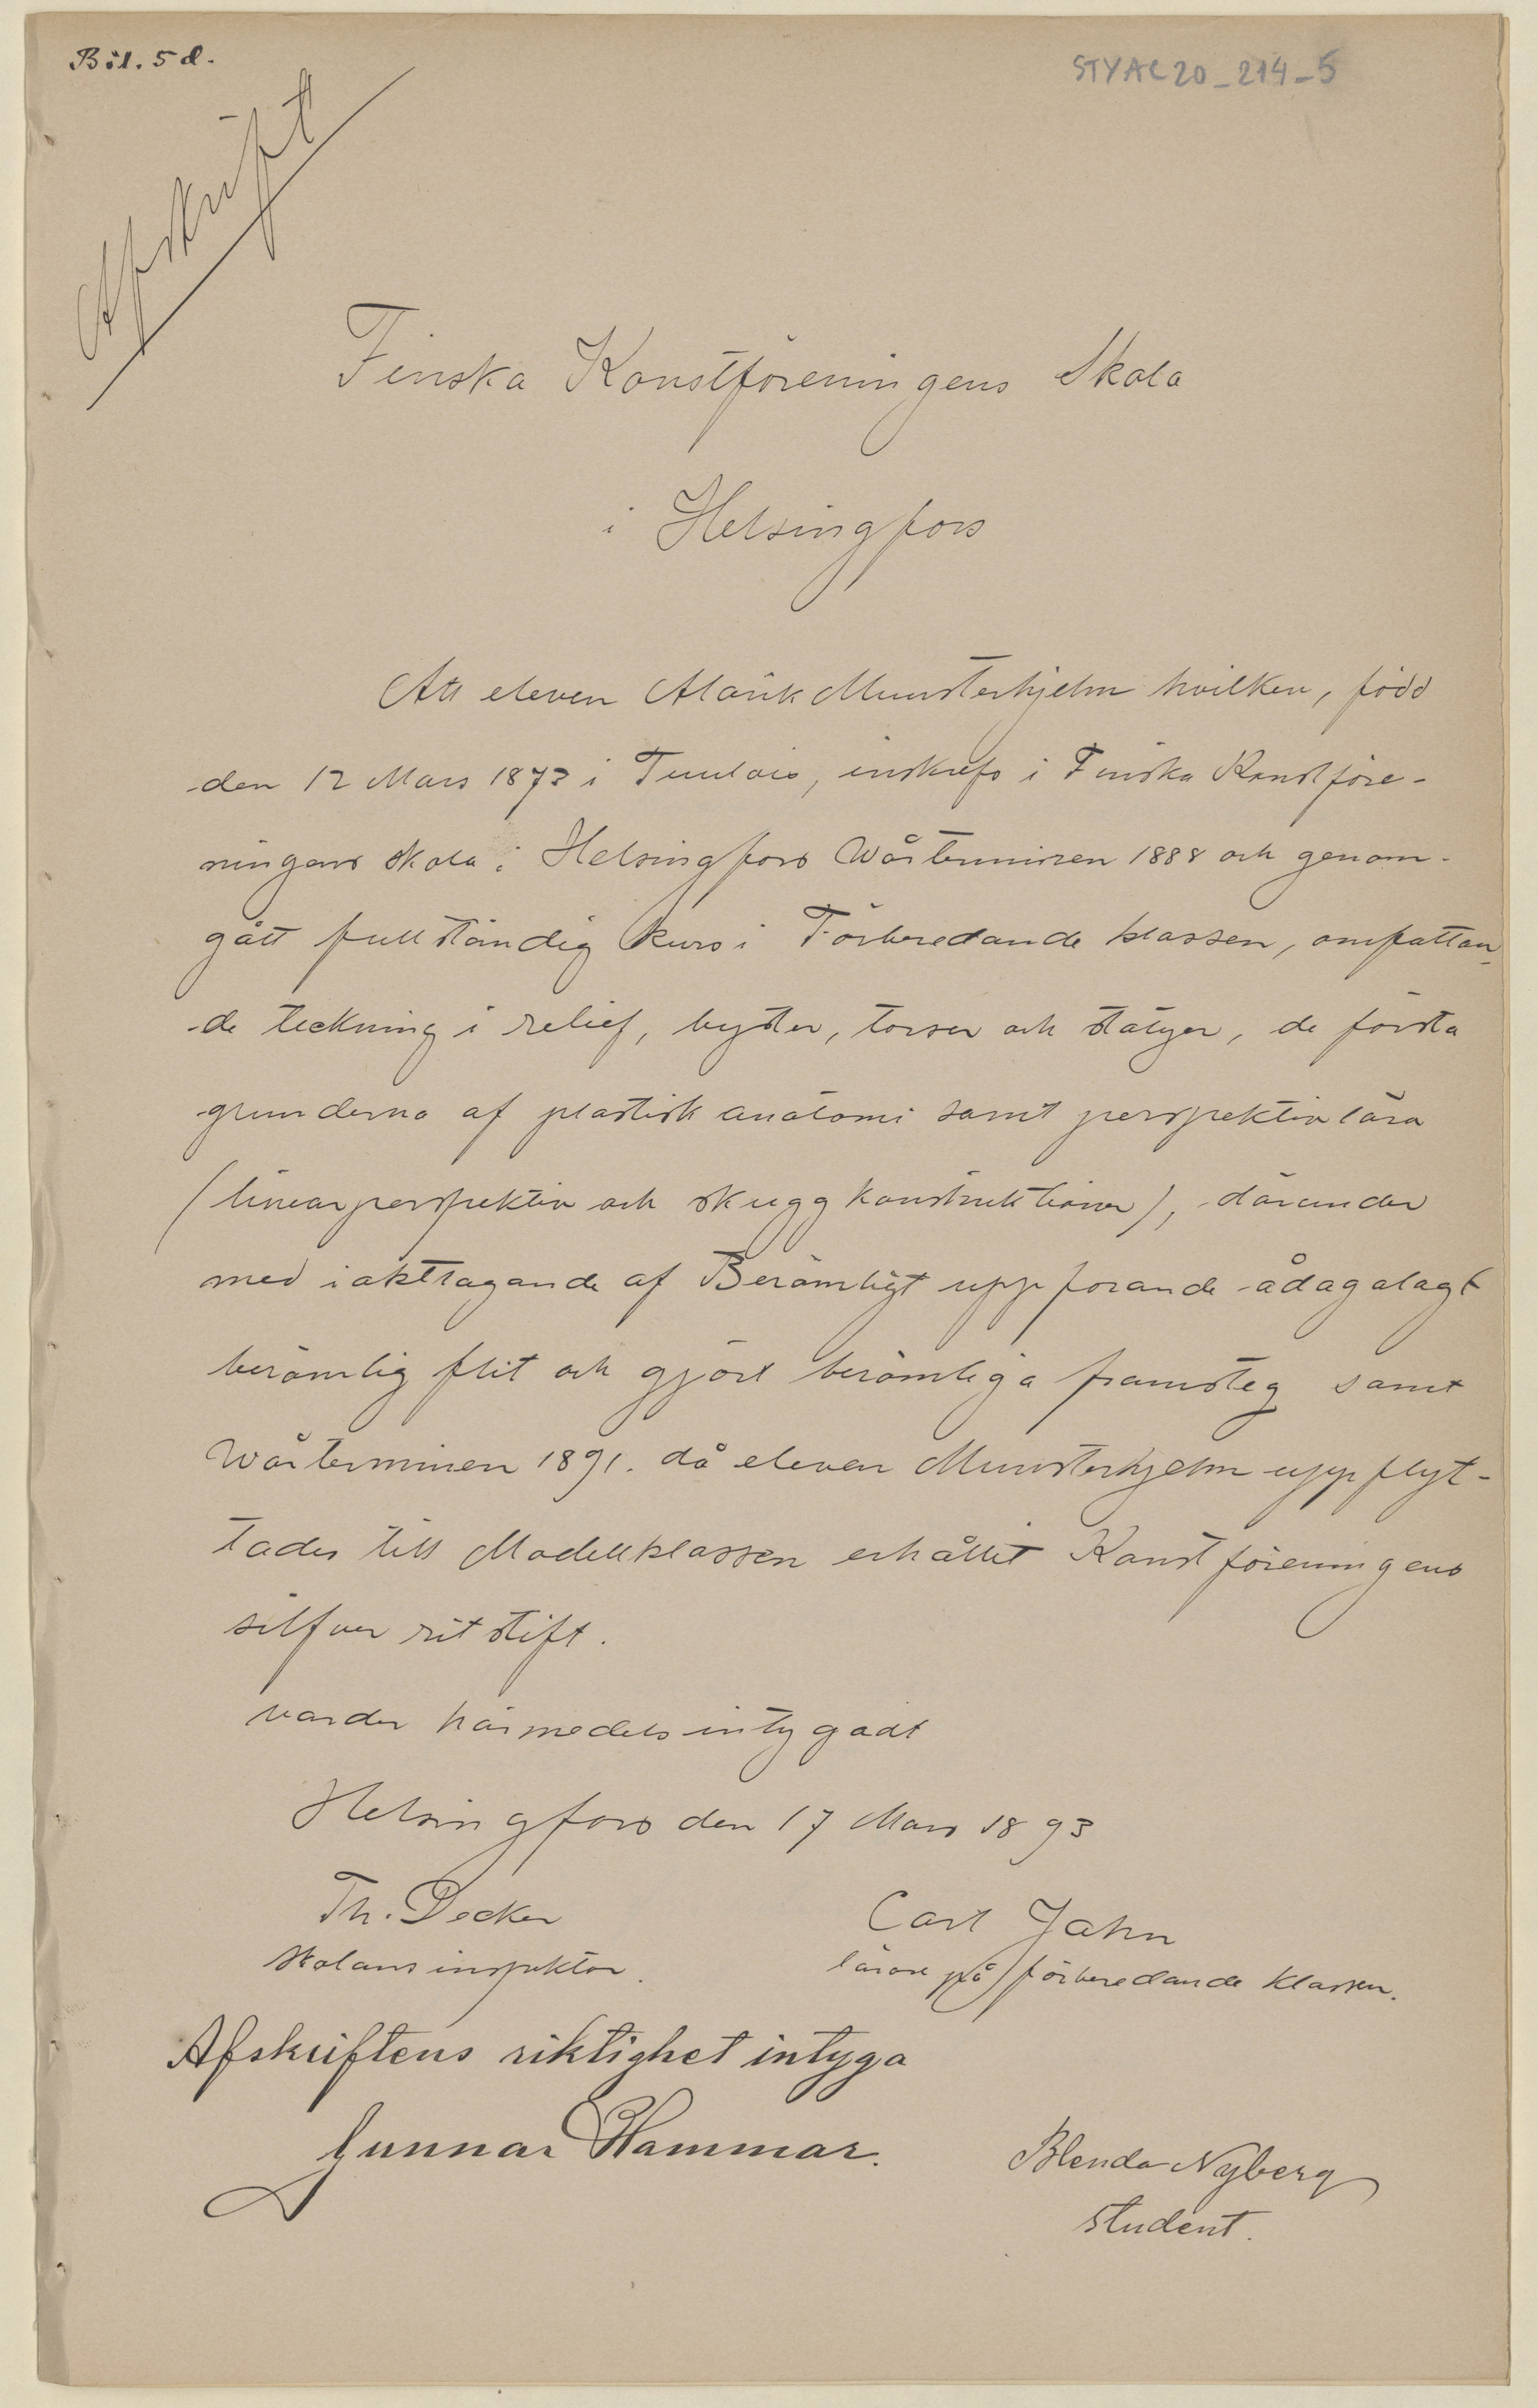 Bil. 5 d.
STYAC20_214_5
Afskrift
Finska Konstföreningens Skola
i Helsingfors
Att eleven Alarik Munsterhjelm hvilken, född
den 12 Mars 1873 i Tuulois, inskrefs i Finska Konstföre-
ningens skola i Helsingfors Wårterminen 1888 och genom-
gått fullständig kurs i Förberedande klassen, omfattan-
de teckning i relief, byster, torser och statyer, de första
grunderna af plastisk anatomi samt perspektivlära
(linearperspektiv och skuggkonstruktioner), därunder
med iakttagande af Berömligt uppförande ådagalagt
berömlig flit och gjort berömliga framsteg samt
Wårterminen 1891. då eleven Munsterhjelm uppflyt-
tades till Modellklassen erhållit Konstföreningens
silfver ritstift.
varder härmedels intygadt
Helsingfors den 17 Mars 1893
Th. Decker
Carl Jahn
Skolans inspektor.
lärare på förberedande klassen.
Afskriftens riktighet intyga
Gunnar Hammar.
Blenda Nyberg
student.